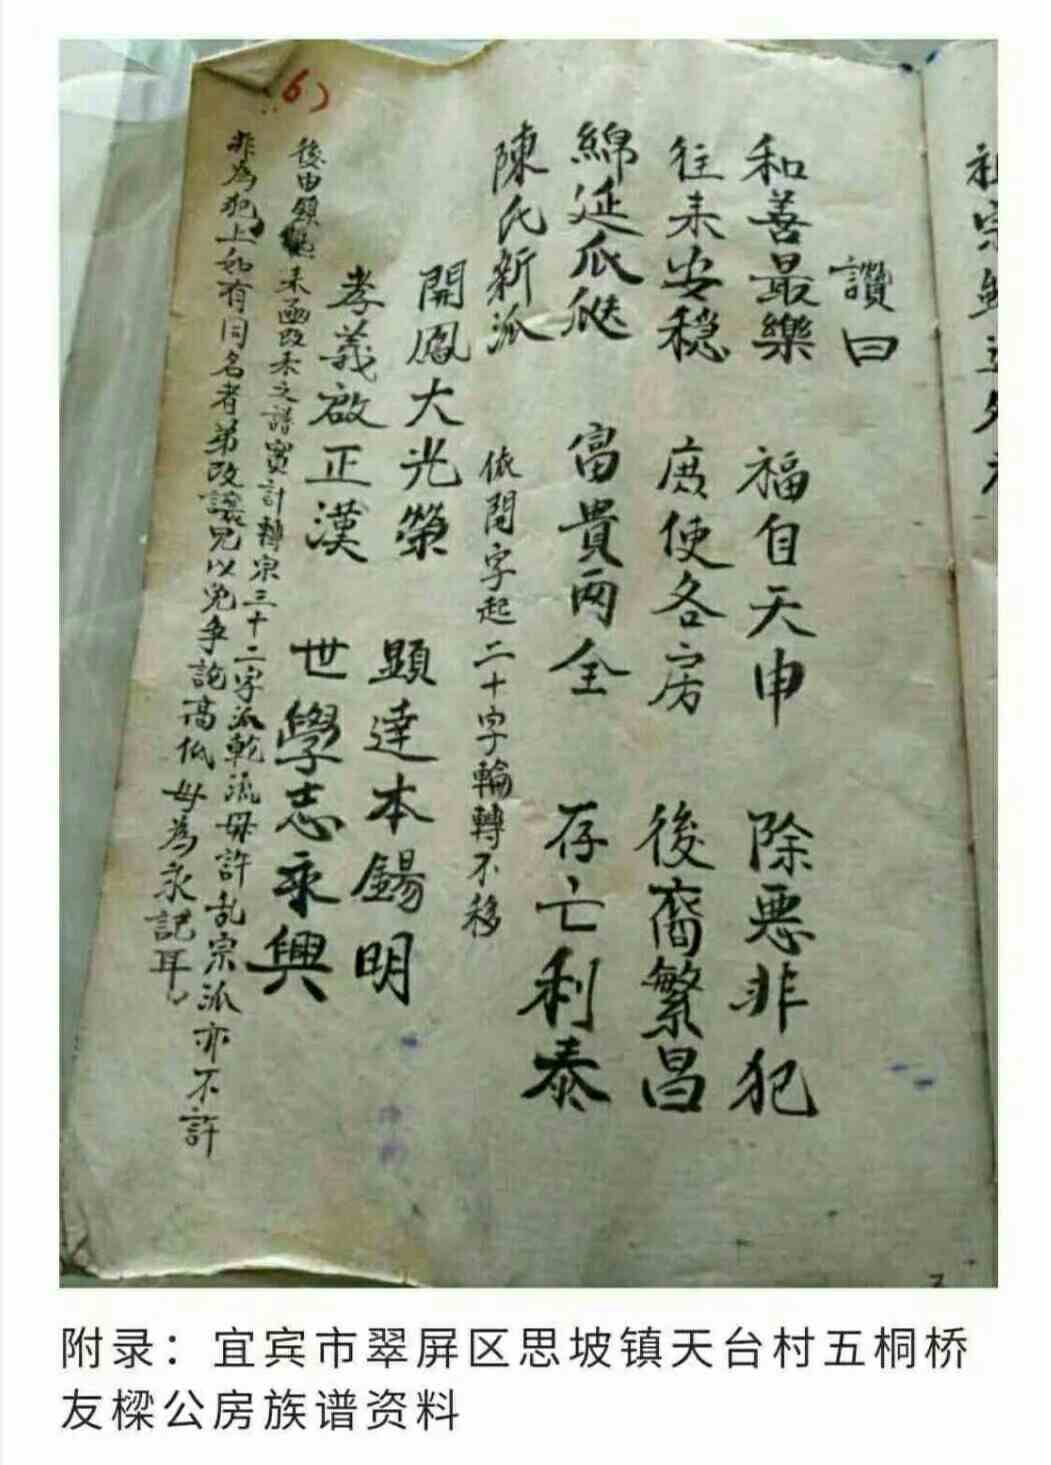 6)
讚曰
和善最樂 福自天申 除惡非犯
往来安穏 庶使各房 後裔繁昌
綿延瓜瓞 富貴兩全 存亡利泰
陳氏新派 依開字起二十字輪轉不移
開鳳大光榮 顯達本錫明
孝義啟正漢 世學志永興
後由領 来函改来之譜實計轉宗三十二字派乾流毋許乱宗派亦不許
非為犯上如有同名者弟改讓兄以免争論高低毋為永記耳
祖宗
附录：宜宾市翠屏区思坡镇天台村五桐桥
友樑公房族谱资料